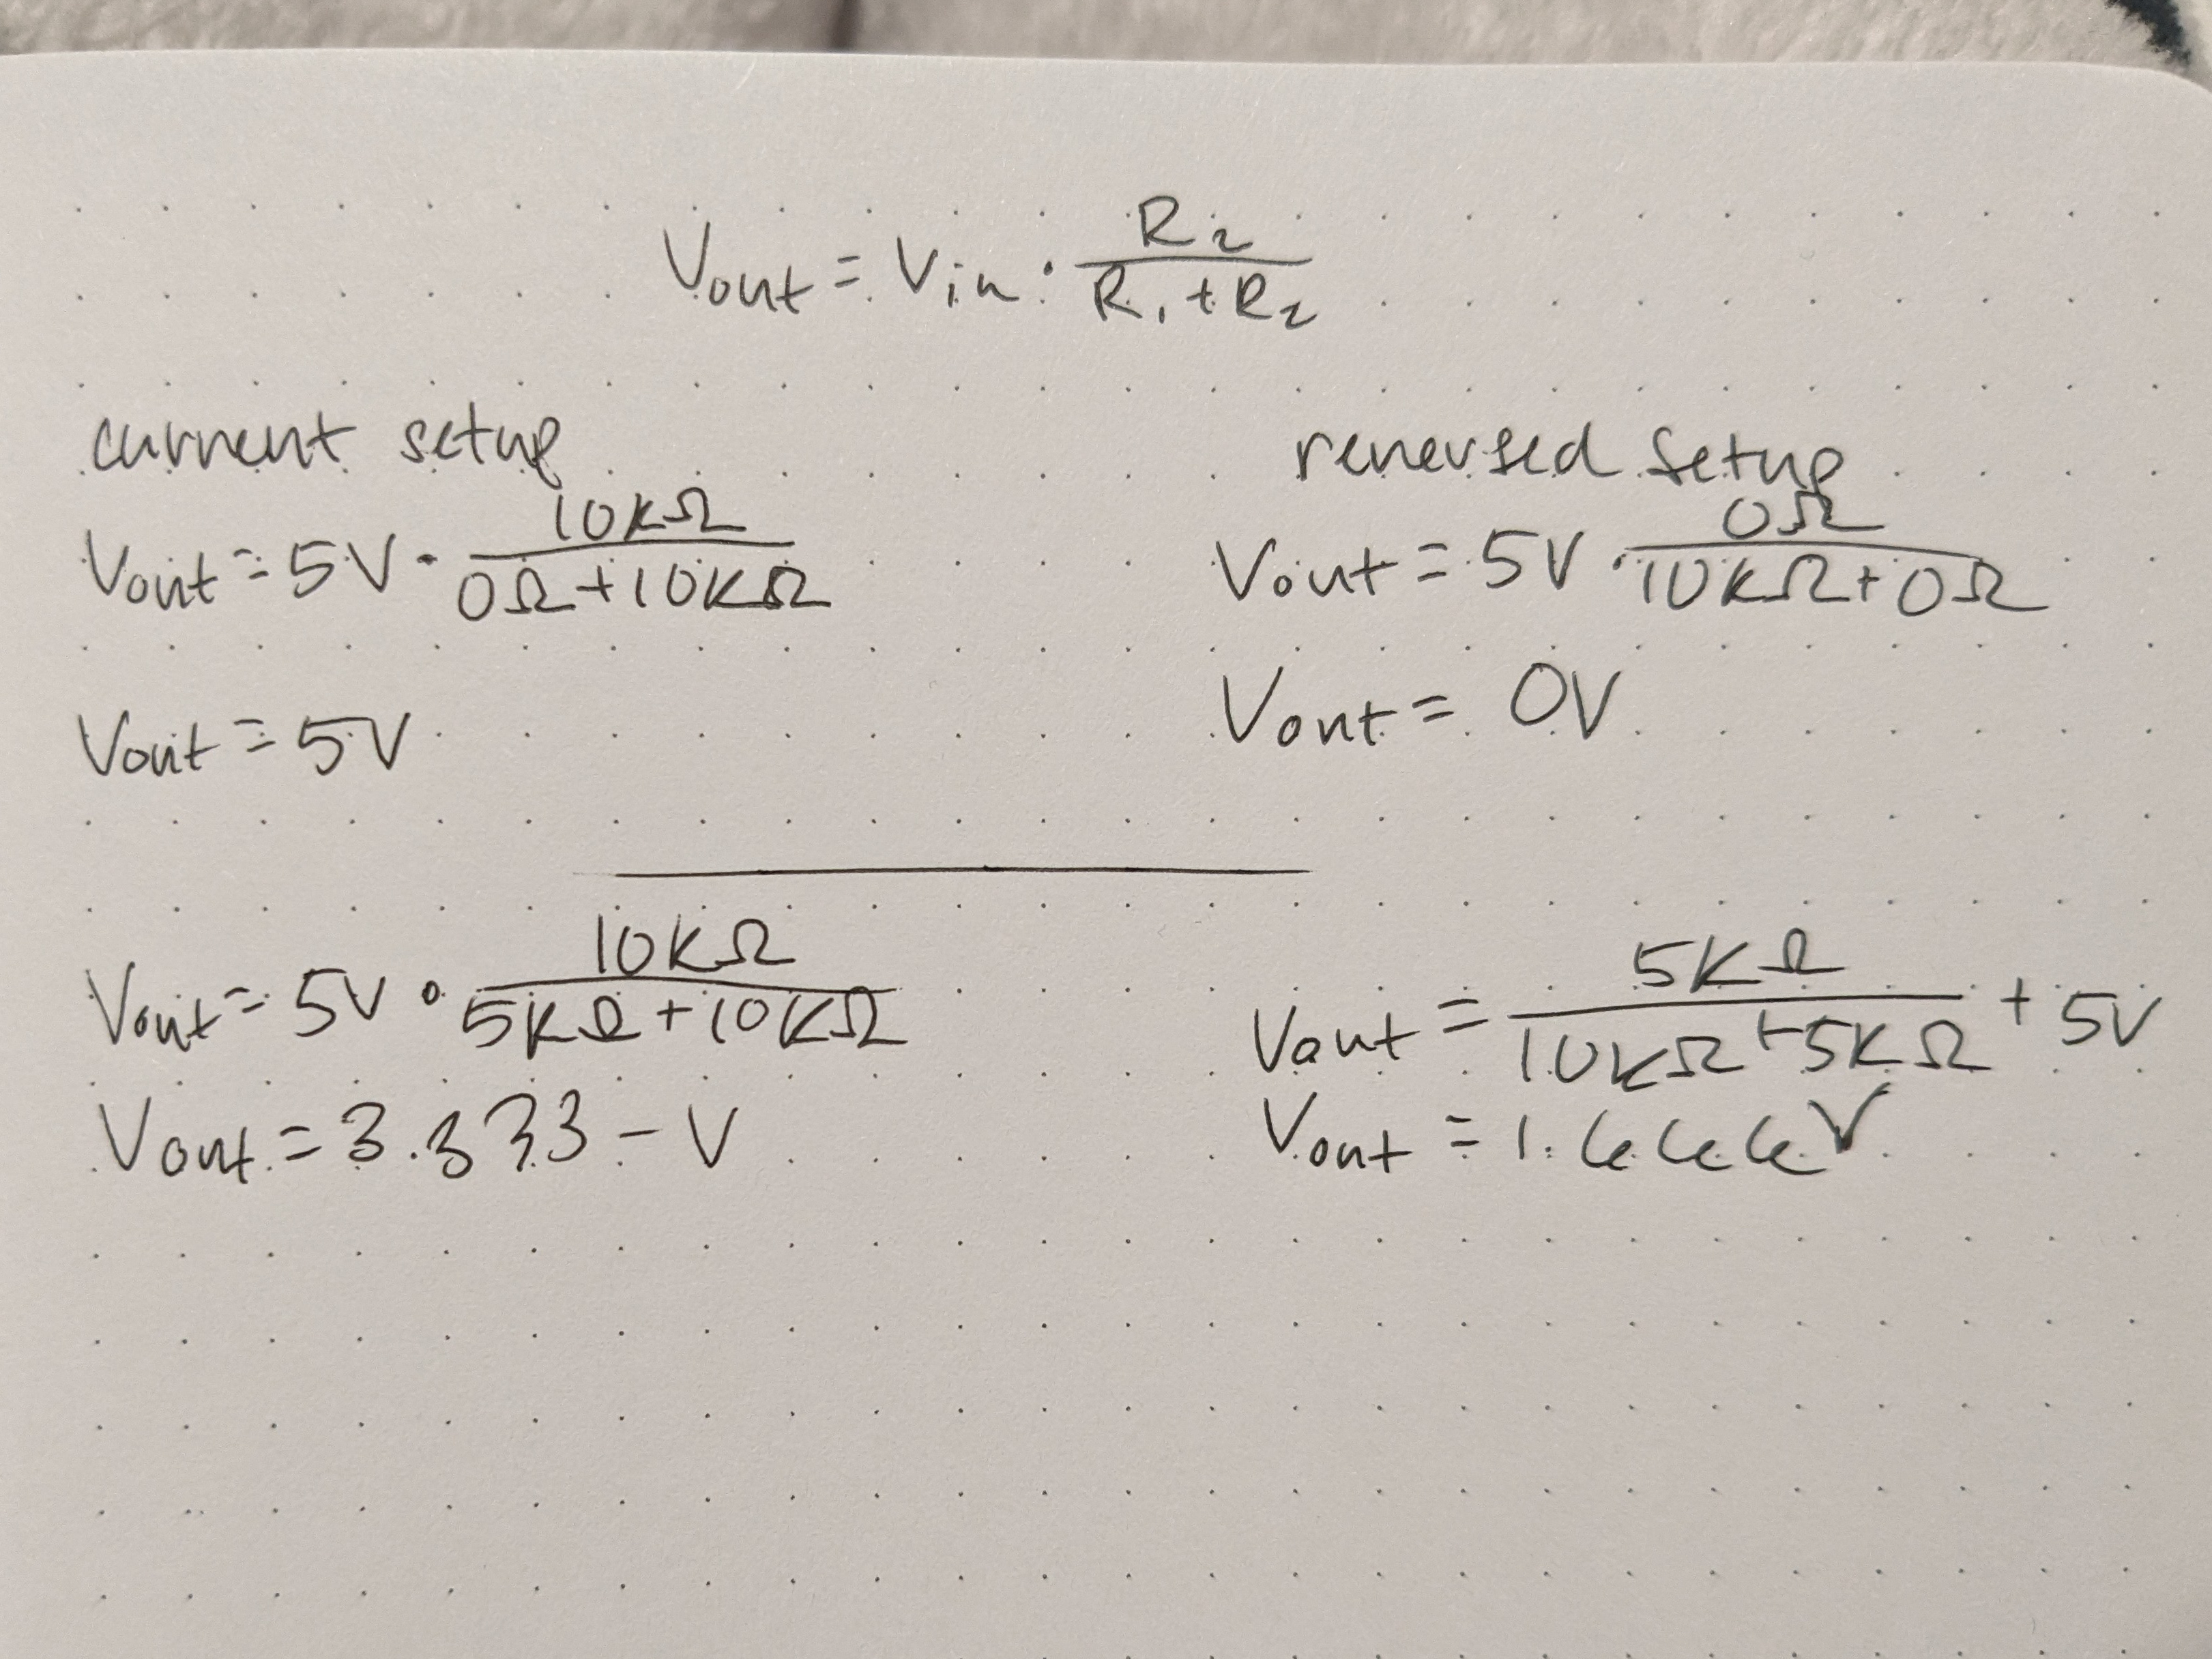 Vout = Vin · R2/(R1+R2)
current setup
Vout = 5V · 10KΩ/(0Ω+10KΩ)
Vout = 5V
reversed setup
Vout = 5V · 0Ω/(10KΩ+0Ω)
Vout = 0V
Vout = 5V · 10KΩ/(5KΩ+10KΩ)
Vout = 3.333- V
Vout = 5KΩ/(10KΩ+5KΩ) + 5V
Vout = 1.666V